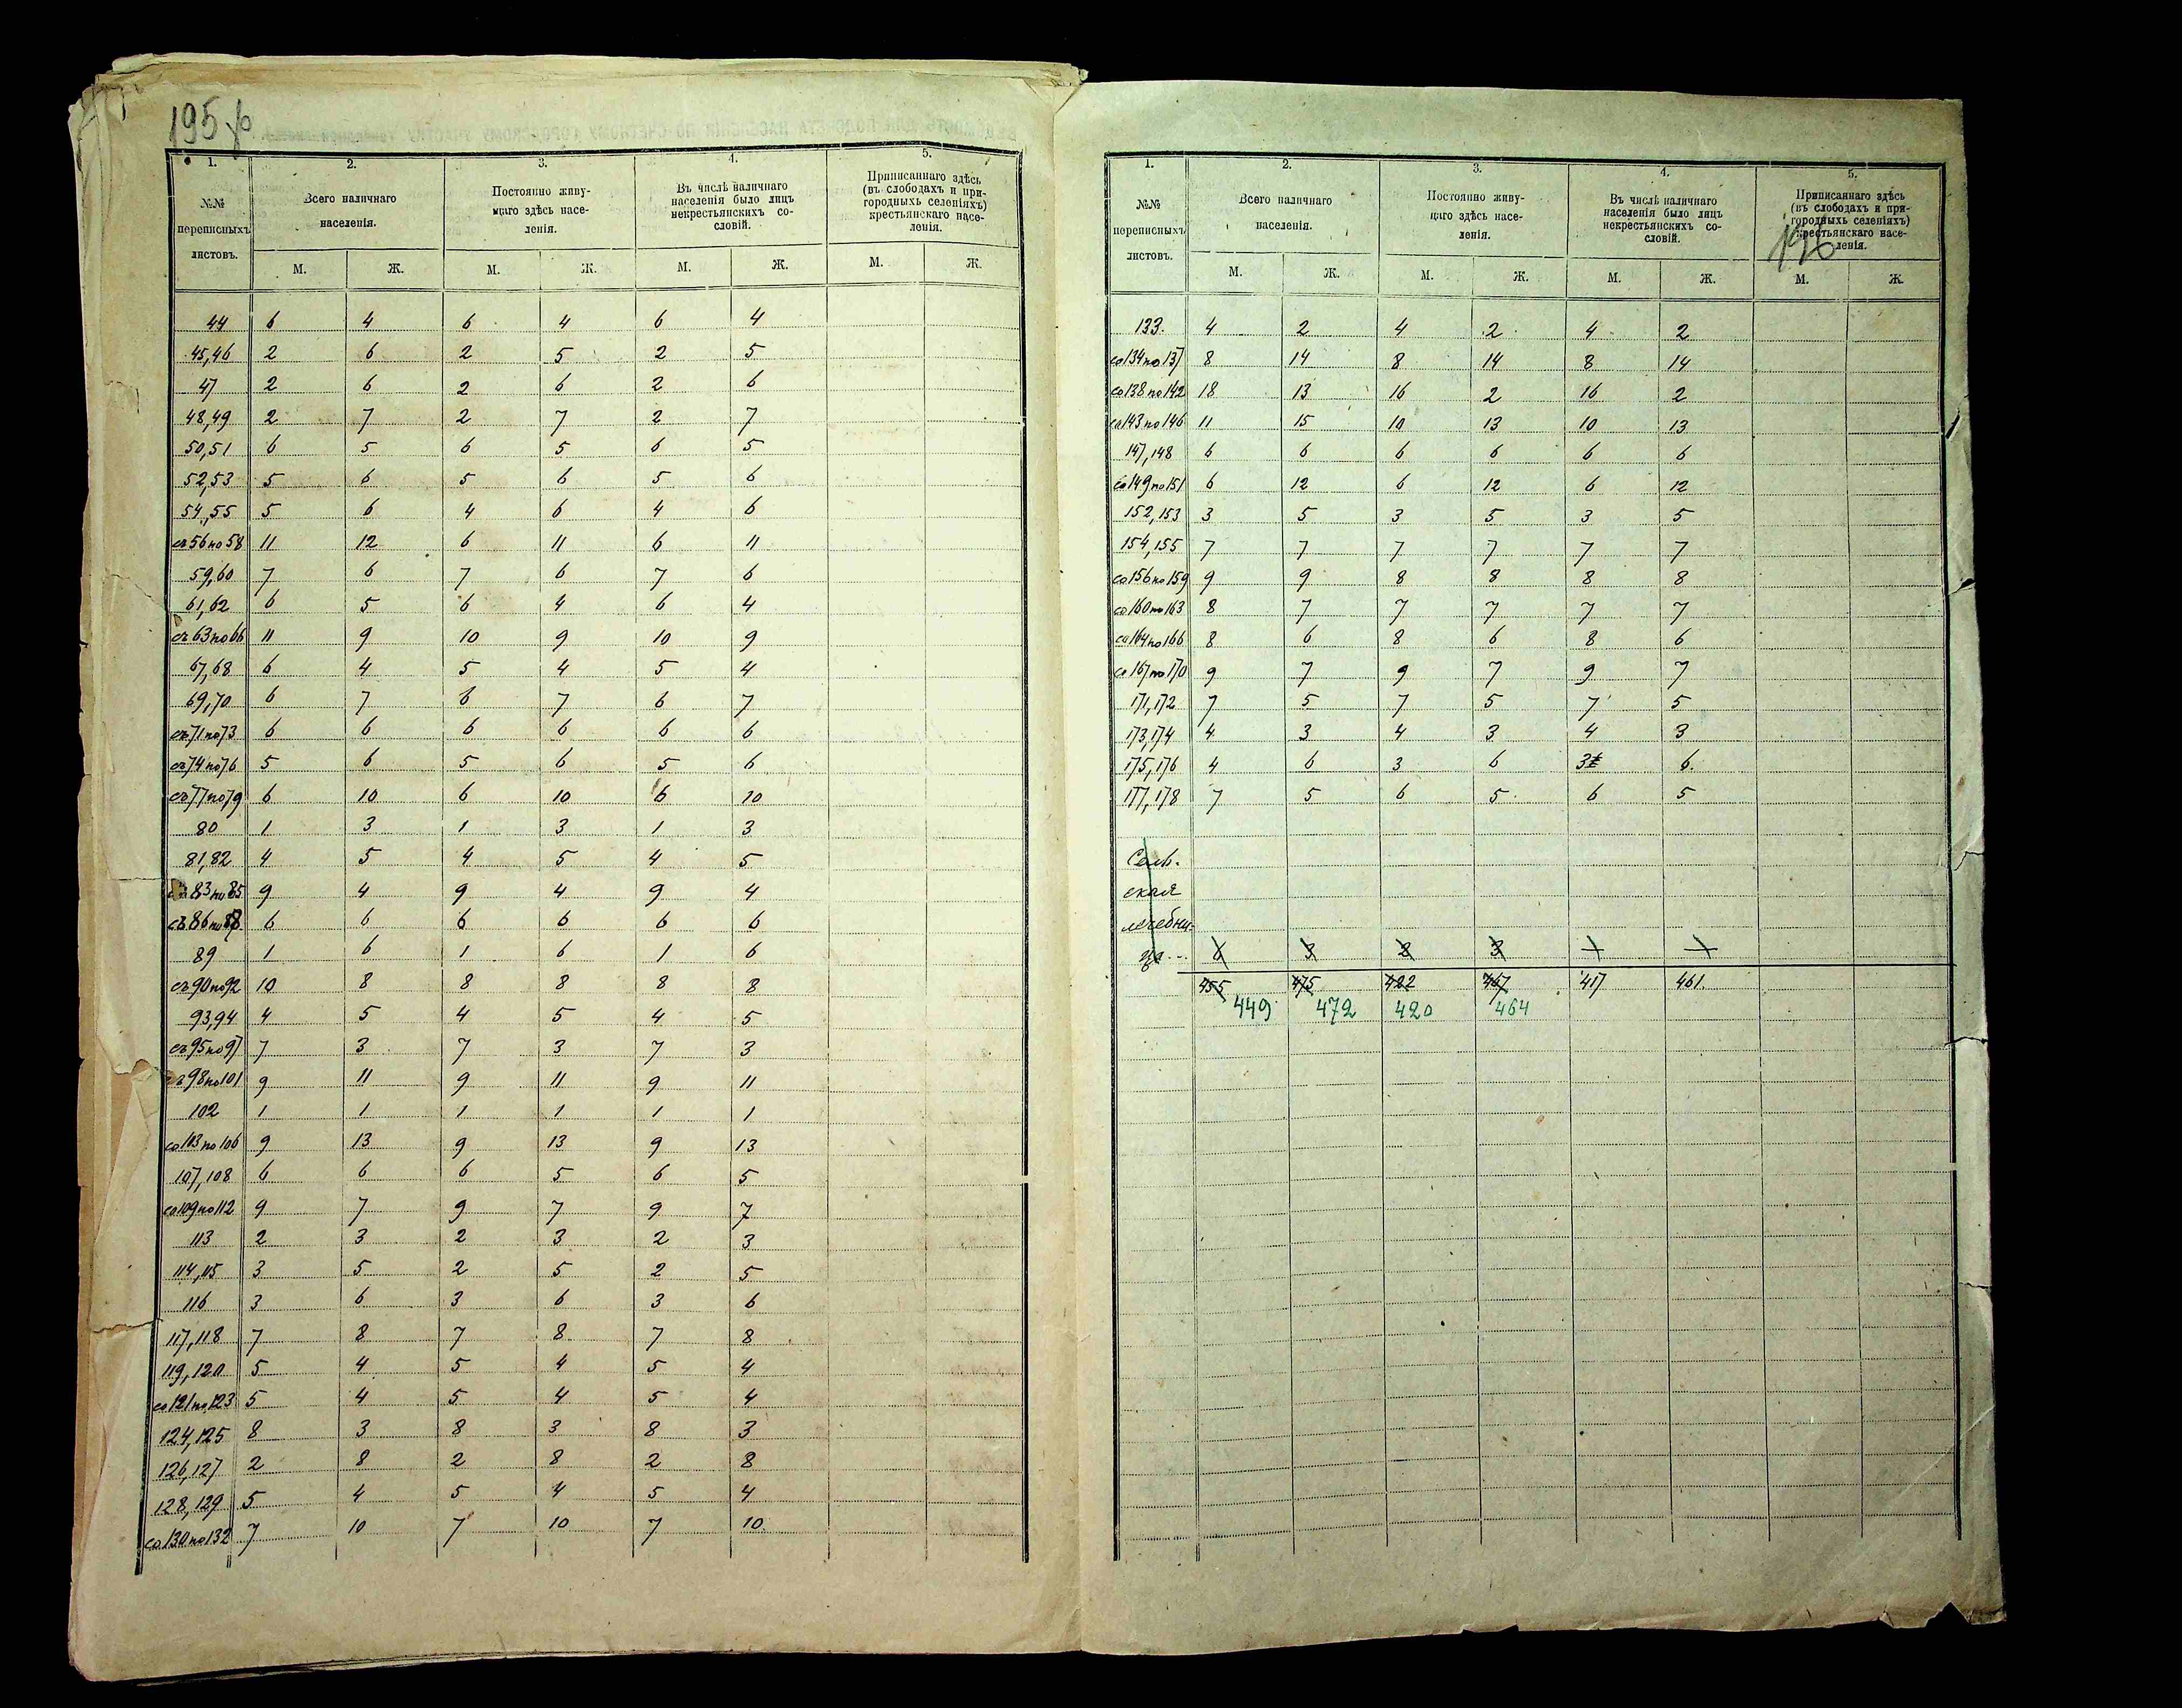 195
1. 2. 3. 4. 5.
№№ переписныхъ листовъ.
Всего наличнаго населенія.
Постоянно живущаго здѣсь населенія.
Въ числѣ наличнаго населенія было лицъ некрестьянскихъ сословій.
Приписаннаго здѣсь (въ слободахъ и пригородныхъ селеніяхъ) крестьянскаго населенія.
М. Ж. М. Ж. М. Ж. М. Ж.
44 6 4 6 4 6 4
45,46 2 6 2 5 2 5
47 2 6 2 6 2 6
48,49 2 7 2 7 2 7
50,51 6 5 6 5 6 5
52,53 5 6 5 6 5 6
54,55 5 6 4 6 4 6
съ 56 по 58 11 12 6 11 6 11
59,60 7 6 7 6 7 6
61,62 6 5 6 4 6 4
съ 63 по 66 11 9 10 9 10 9
67,68 6 4 5 4 5 4
69,70 6 7 6 7 6 7
съ 71 по 73 6 6 6 6 6 6
съ 74 по 76 5 6 5 6 5 6
съ 77 по 79 6 10 6 10 6 10
80 1 3 1 3 1 3
81,82 4 5 4 5 4 5
съ 83 по 85 9 4 9 4 9 4
съ 86 по 88 6 6 6 6 6 6
89 1 6 1 6 1 6
съ 90 по 92 10 8 8 8 8 8
93,94 4 5 4 5 4 5
съ 95 по 97 7 3 7 3 7 3
съ 98 по 101 9 11 9 11 9 11
102 1 1 1 1 1 1
со 103 по 106 9 13 9 13 9 13
107,108 6 6 6 5 6 5
со 109 по 112 9 7 9 7 9 7
113 2 3 2 3 2 3
114,115 3 5 2 5 2 5
116 3 6 3 6 3 6
117,118 7 8 7 8 7 8
119,120 5 4 5 4 5 4
со 121 по 123 5 4 5 4 5 4
124,125 8 3 8 3 8 3
126,127 2 8 2 8 2 8
128,129 5 4 5 4 5 4
со 130 по 132 7 10 7 10 7 10
196
1. 2. 3. 4. 5.
№№ переписныхъ листовъ.
Всего наличнаго населенія.
Постоянно живущаго здѣсь населенія.
Въ числѣ наличнаго населенія было лицъ некрестьянскихъ сословій.
Приписаннаго здѣсь (въ слободахъ и пригородныхъ селеніяхъ) крестьянскаго населенія.
М. Ж. М. Ж. М. Ж. М. Ж.
133. 4 2 4 2 4 2
со 134 по 137 8 14 8 14 8 14
со 138 по 142 18 13 16 2 16 2
со 143 по 146 11 15 10 13 10 13
147,148 6 6 6 6 6 6
со 149 по 151 6 12 6 12 6 12
152,153 3 5 3 5 3 5
154,155 7 7 7 7 7 7
со 156 по 159 9 9 8 8 8 8
со 160 по 163 8 7 7 7 7 7
со 164 по 166 8 6 8 6 8 6
со 167 по 170 9 7 9 7 9 7
171,172 7 5 7 5 7 5
173,174 4 3 4 3 4 3
175,176 4 6 3 6 3 6.
177,178 7 5 6 5 6 5
Сель-
ская
лечебни-
ца... 6 3 2 3
455 475 422 467 417 461.
449 472 420 464